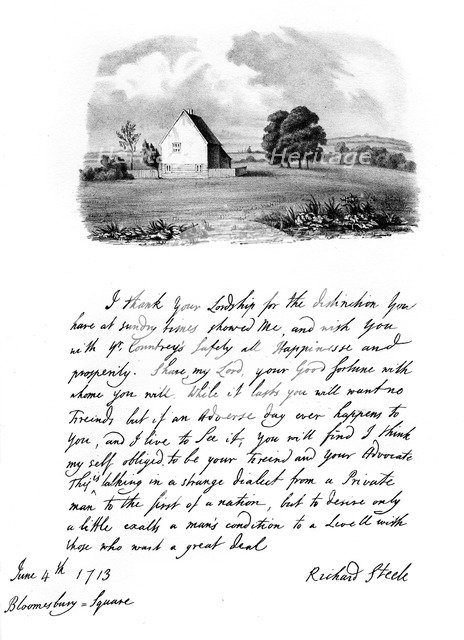 Heritage
I thank Your Lordship for the distinction You
have at sundry times showed Me, and wish You
with yr. Countrey's Safety all Happinesse and
prosperity. Share my Lord, your Good fortune with
whome you will, While it lasts you will want no
Freinds, but if an Adverse day ever happens to
You, and I live to See it, You will find I think
my self obliged to be your freind and your Advocate
This is talking in a strange dialect from a Private
man to the first of a nation, but to desire only
a little exalts a man's condition to a Levell with
those who want a great deal
June 4th 1713
Richard Steele
Bloomesbury=Square